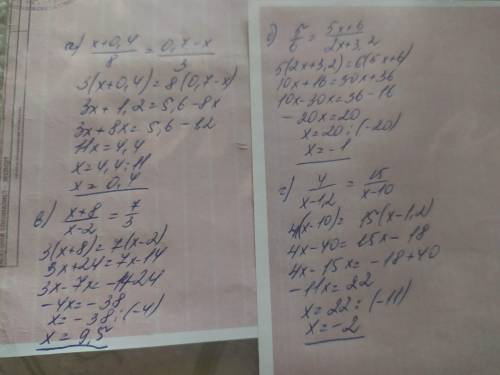 а) (x+0,4)/8 = (0,7-x)/3
3(x+0,4)=8(0,7-x)
3x+1,2=5,6-8x
3x+8x=5,6-1,2
11x=4,4
x=4,4:11
x=0,4
в) (x+8)/(x-2) = 7/3
3(x+8)=7(x-2)
3x+24=7x-14
3x-7x=-14-24
-4x=-38
x=-38:(-4)
x=9,5
б) 5/6 = (5x+6)/(2x+3,2)
5(2x+3,2)=6(5x+6)
10x+16=30x+36
10x-30x=36-16
-20x=20
x=20:(-20)
x=-1
г) 4/(x-1,2) = 15/(x-10)
4(x-10)=15(x-1,2)
4x-40=15x-18
4x-15x=-18+40
-11x=22
x=22:(-11)
x=-2